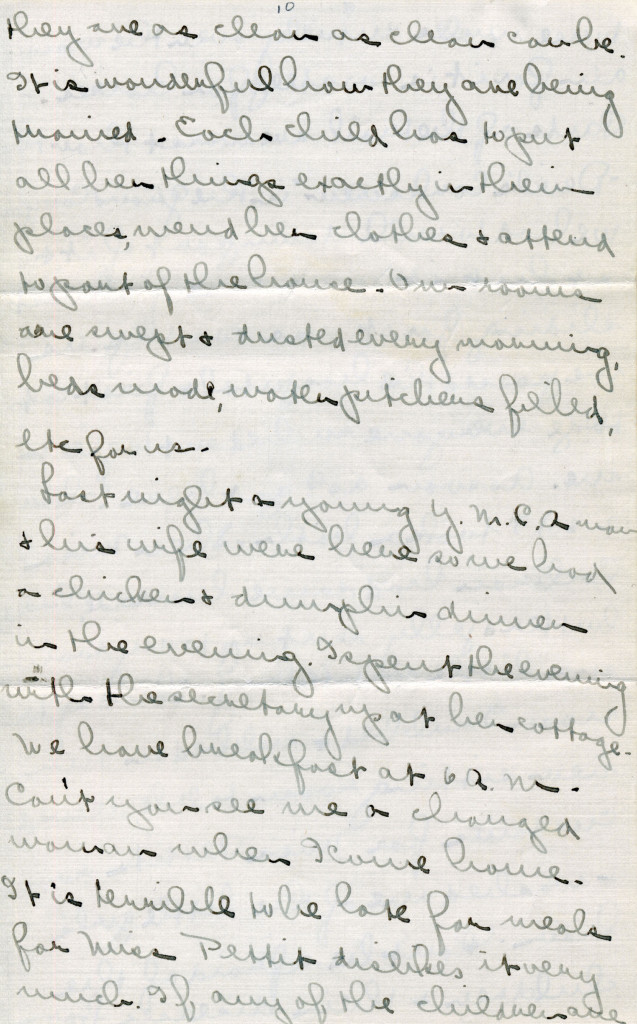 10
they are as clean as clean can be.
It is wonderful how they are being
trained. Each child has to put
all her things exactly in their
places, mend her clothes & attend
to part of the house. Our rooms
are swept & dusted every morning,
beds made, water pitchers filled,
etc for us.
Last night a young Y.M.C.A man
& his wife were here so we had
a chicken & dumplin dinner
in the evening. I spent the evening
with the secretary up at her cottage.
We have breakfast at 6 A.M.
Can't you see me a changed
woman when I come home.
It is terrible to be late for meals
for Miss Pettit dislikes it very
much. If any of the children are